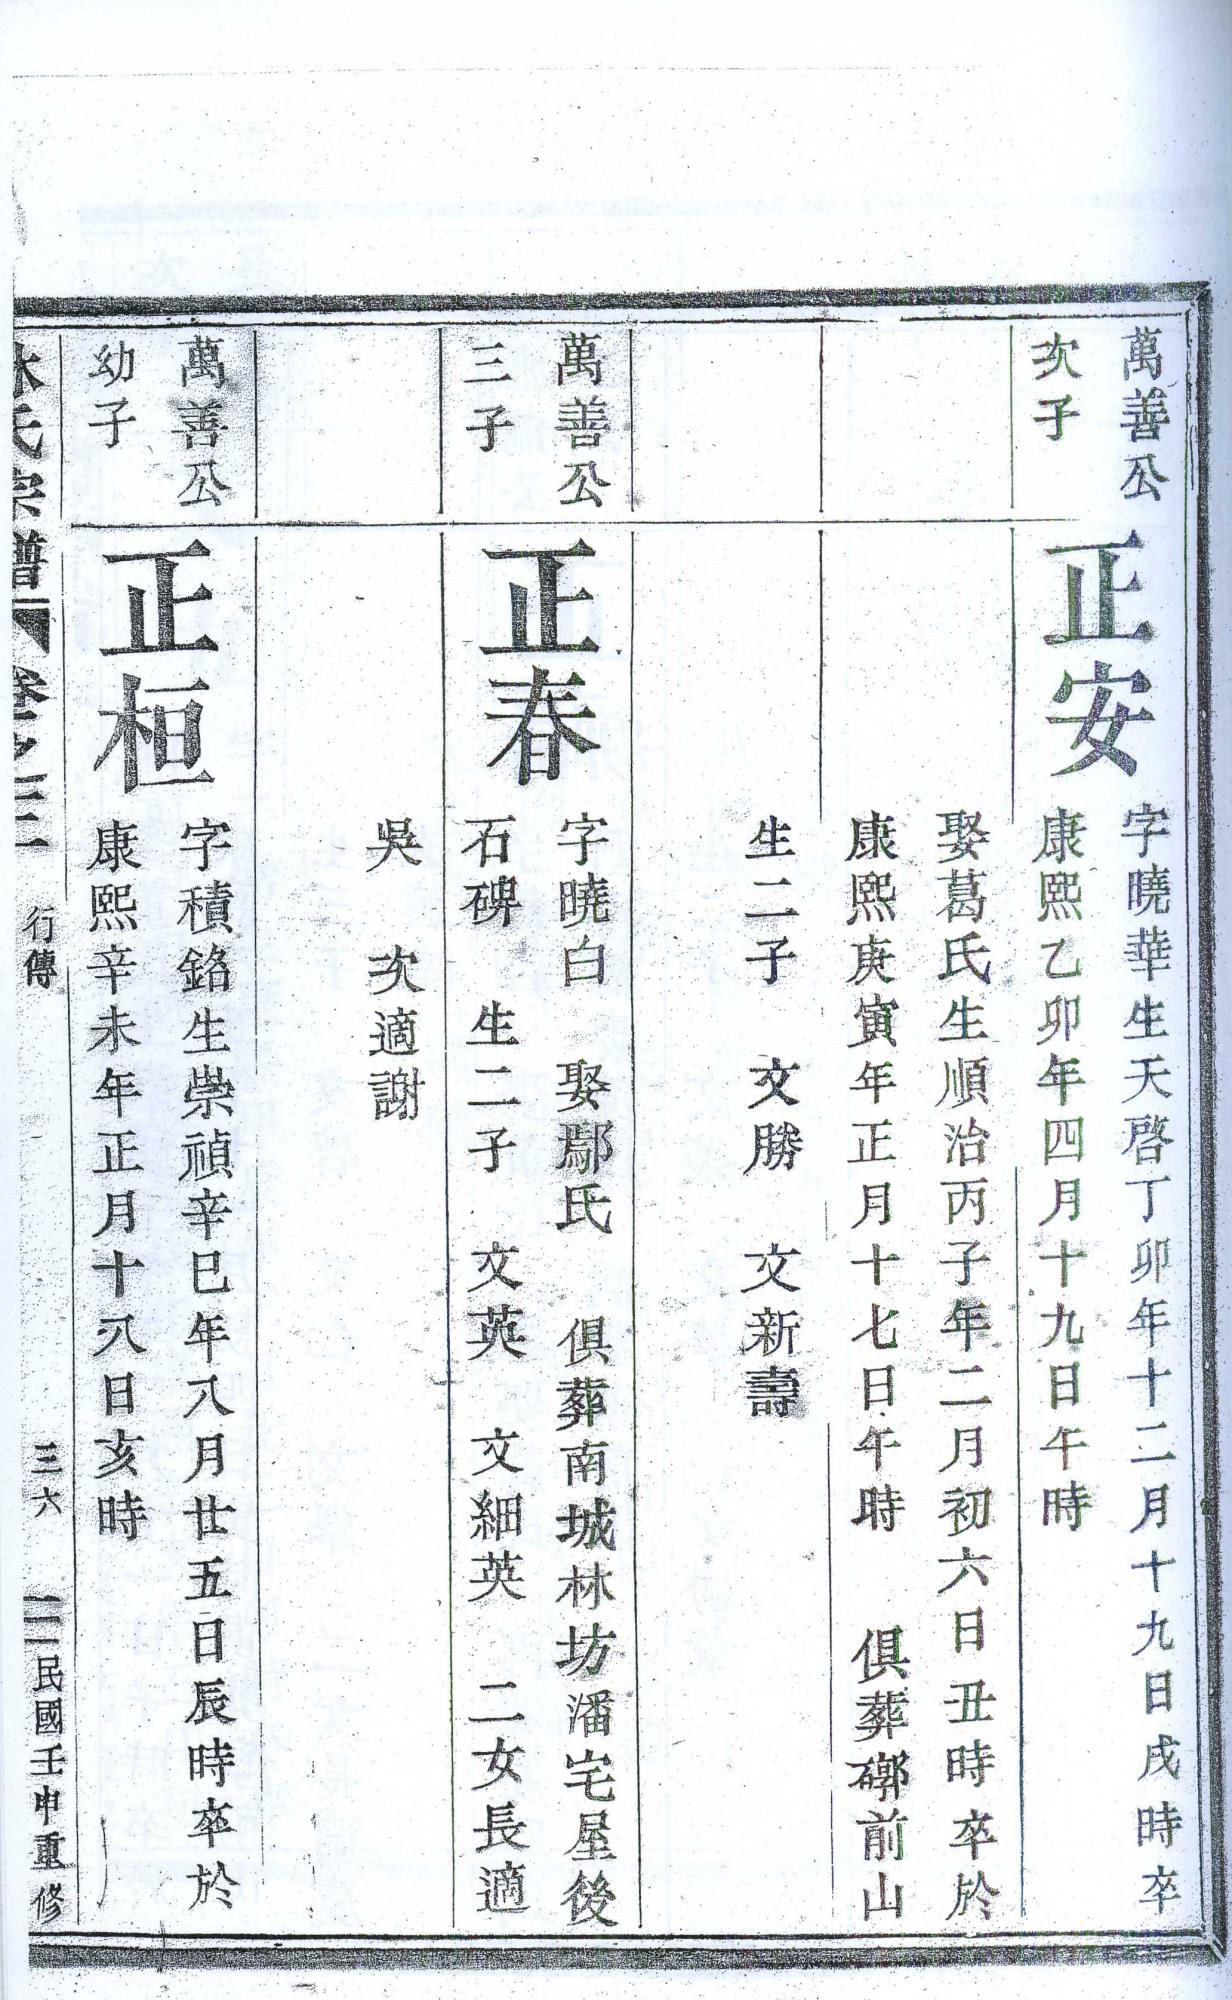 萬善公
次子
正安
字曉華生天啓丁卯年十二月十九日戌時卒
康熙乙卯年四月十九日午時
娶葛氏生順治丙子年二月初六日丑時卒於
康熙庚寅年正月十七日午時 俱葬鄉前山
生二子 文勝 文新壽
萬善公
三子
正春
字曉白 娶鄢氏 俱葬南城林坊潘宅屋後
石碑 生二子 文英 文細英 二女長適
吳 次適謝
萬善公
幼子
正桓
字積銘生崇禎辛巳年八月廿五日辰時卒於
康熙辛未年正月十八日亥時
林氏宗譜 卷之三 行傳 三六 民國壬申重修